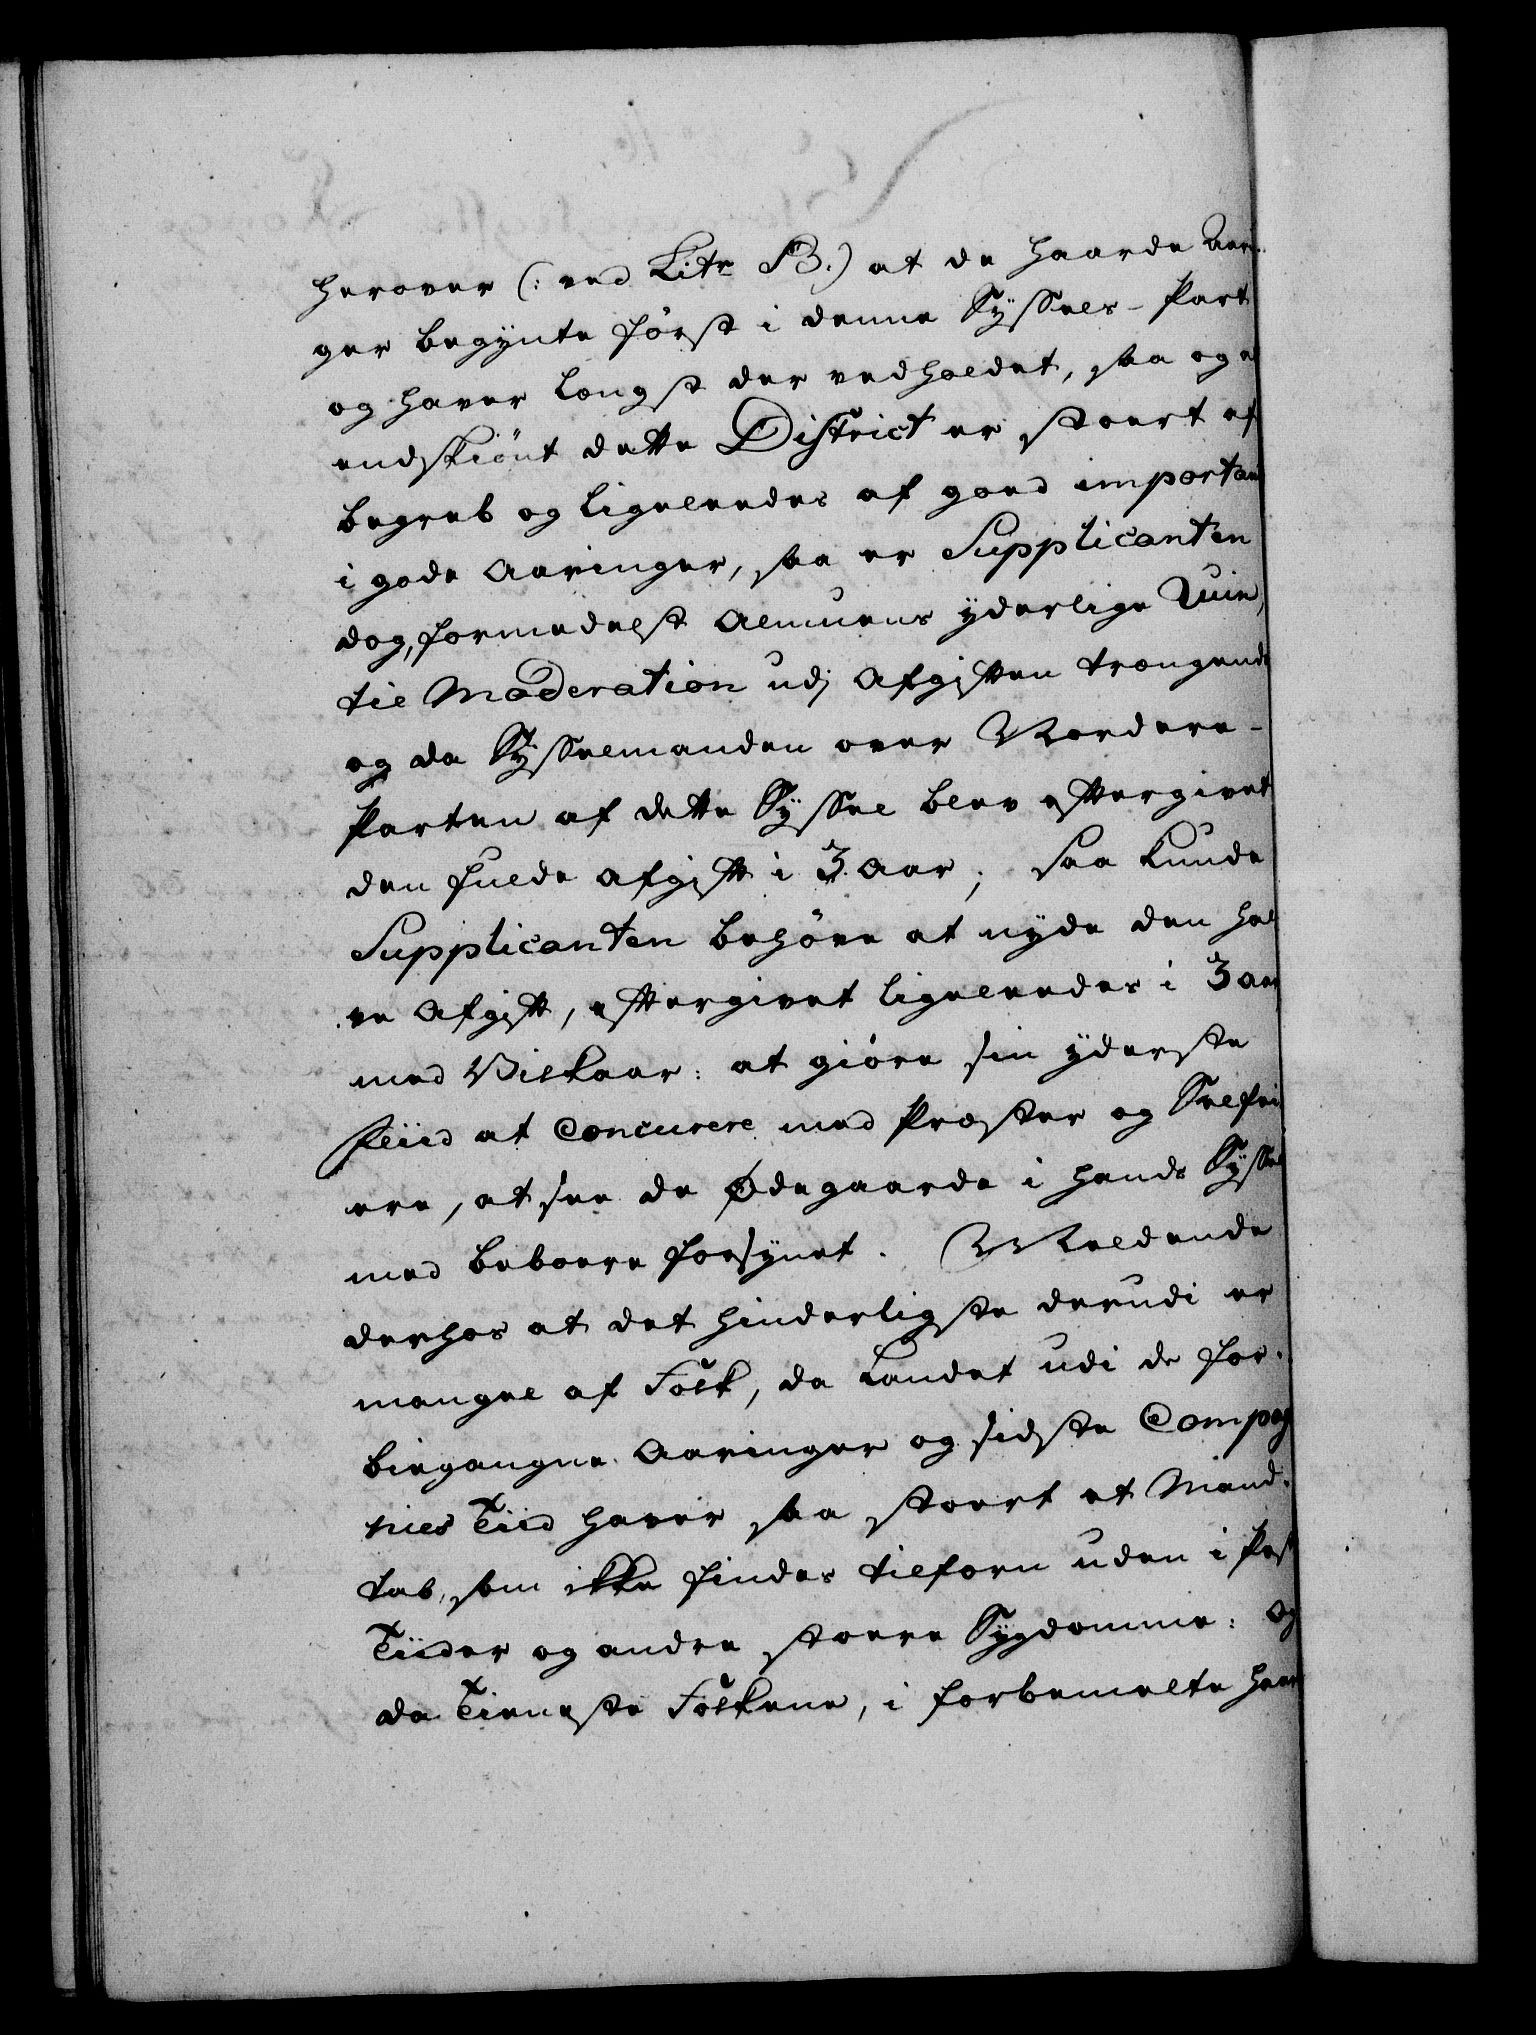 herover (: ved Litr B.) at de haarde Aarin-
ger begynte først i denne Syssels-Part
og haver længst der vedholdet, saa og
endskiönt dette District er stoert af
begreb og ligeleedes af goed importan
i gode Aaringer, saa er Supplicanten
dog, formedelst Almuens yderlige Ruin,
til Moderation udj Afgiften trængende
og da Sysselmanden over Nordere-
Parten af dette Syssel blev eftergivet
den fulde Afgift i 3 Aar; saa kunde
Supplicanten behøve at nyde den hal
ve Afgift, eftergivet ligeleedes i 3 Aar
med Vilkaar: at giöre sin yderste
Fliid at Concurere med Præster og Selfei
ere, at see de Ødegaarde i hands Syssel
med beboere forsynet. Meldende
derhos at det hinderligste derudi er
mangel af Folk, da Landet udi de for-
biegangne Aaringer og sidste Compag
nies Tiid haver saa stoert et Mand-
tab, som ikke findes tilforn uden i Pest
Tiider og andre stoere Sygdomme: Og
da Tieneste Folkene, i forbemelte haar